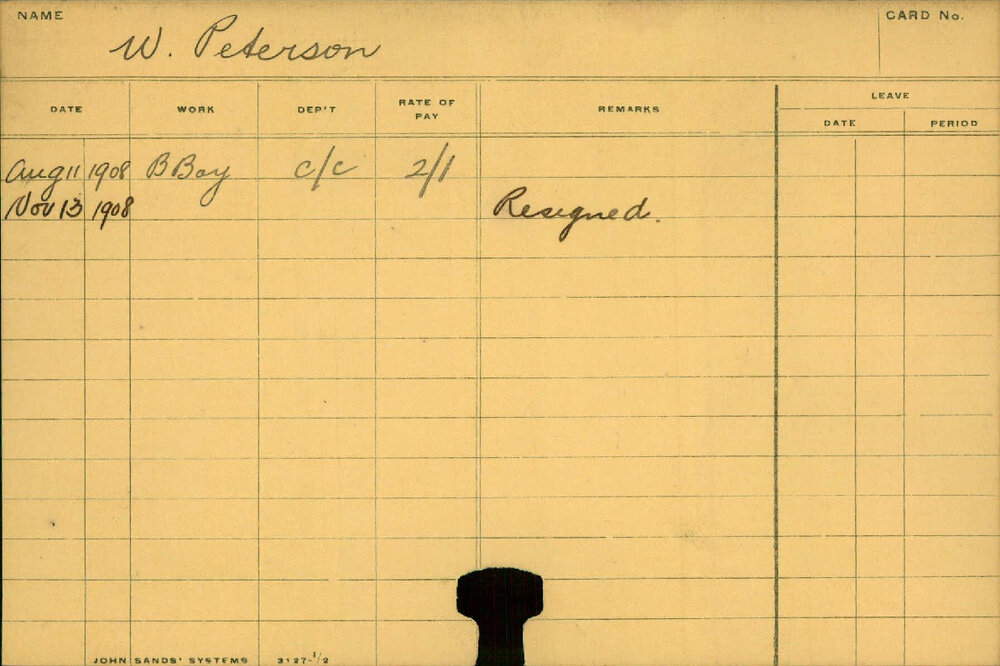 NAME
CARD No.
W. Peterson
DATE WORK DEP'T RATE OF PAY REMARKS LEAVE
DATE PERIOD
Aug 11 1908 B Boy c/c 2/1
Nov 13 1908 Resigned.
JOHN SANDS' SYSTEMS 3127-1/2